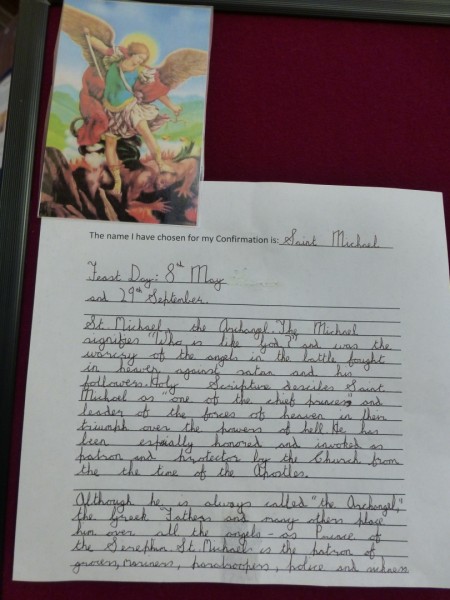 The name I have chosen for my Confirmation is: Saint Michael
Feast Day: 8th May
and 29th September.
St. Michael, the Archangel. The Michael
signifies "Who is like God?" and was the
warcry of the angels in the battle fought
in heaven against satan and his
followers. Holy Scripture descibes Saint
Michael as "one of the chief princes" and
leader of the forces of heaven in their
triumph over the powers of hell. He has
been espially honored and invoked as
patron and protector by the Church from
the the time of the Apostles.
Although he is always called "the Archangel,"
the Greek Fathers and many others place
him over all the angels - as Prince of
the Seraphim St. Michael is the patron of
grocers, mariners, paratroopers, police and sickness